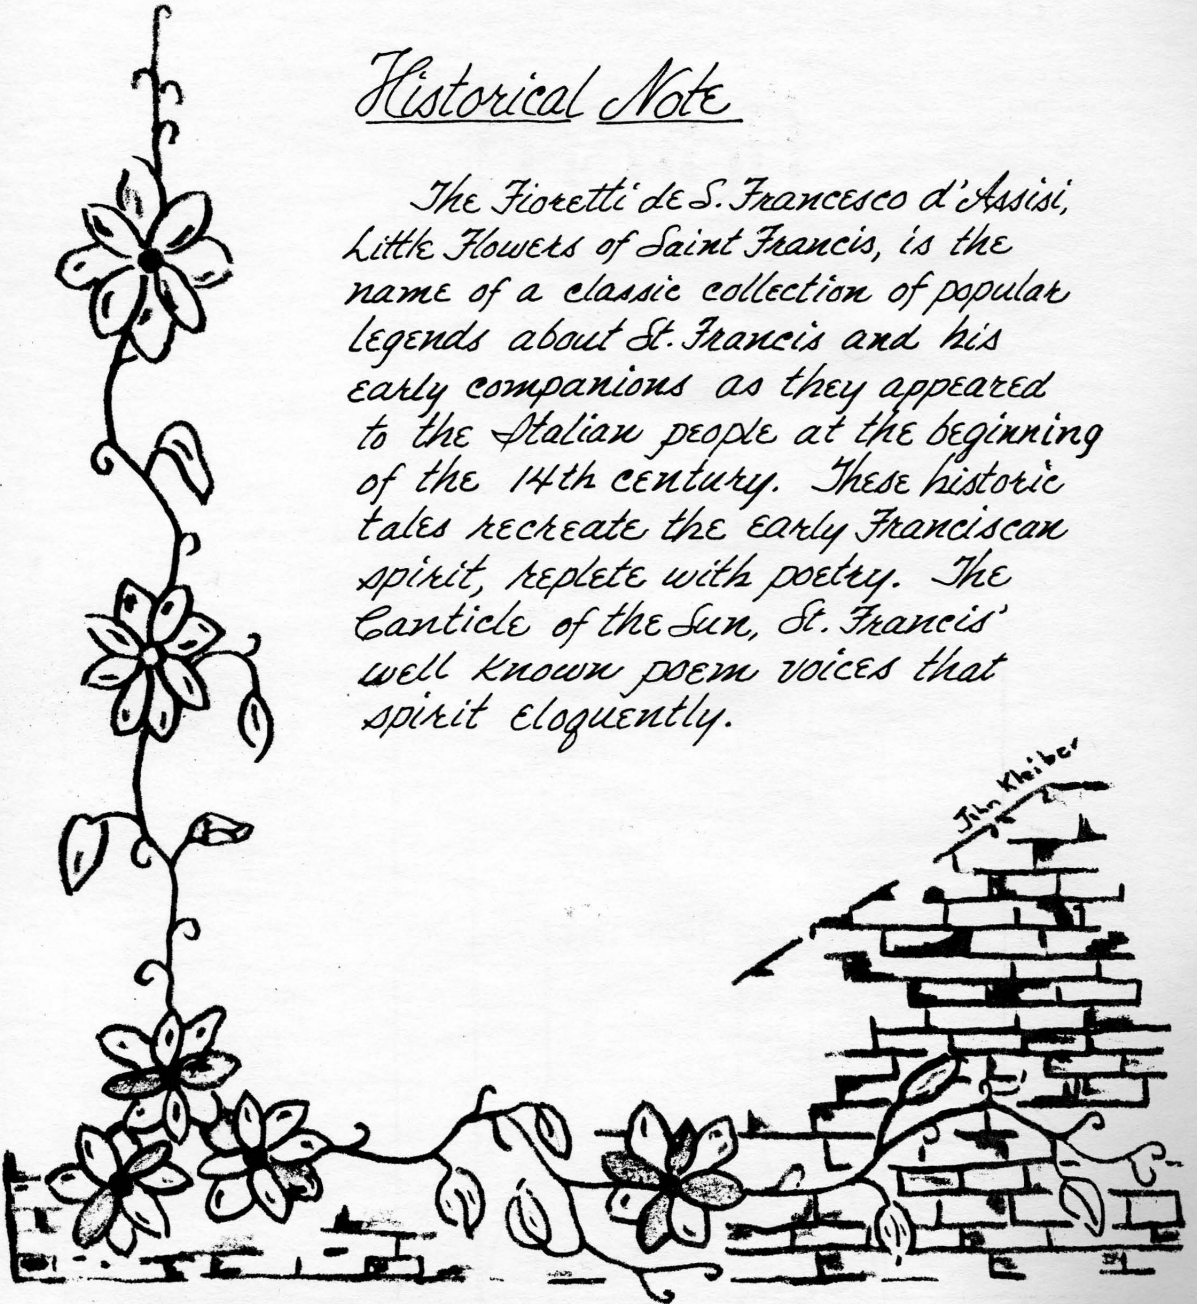 Historical Note
The Fioretti de S. Francesco d'Assisi,
Little Flowers of Saint Francis, is the
name of a classic collection of popular
legends about St. Francis and his
early companions as they appeared
to the Italian people at the beginning
of the 14th century. These historic
tales recreate the early Franciscan
spirit, replete with poetry. The
Canticle of the Sun, St. Francis'
well known poem voices that
spirit eloquently.
John Kleiber